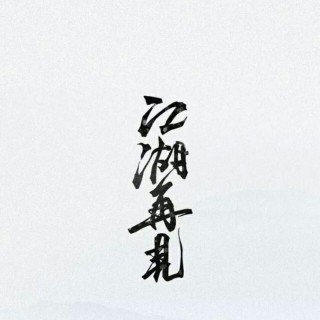 江湖再见